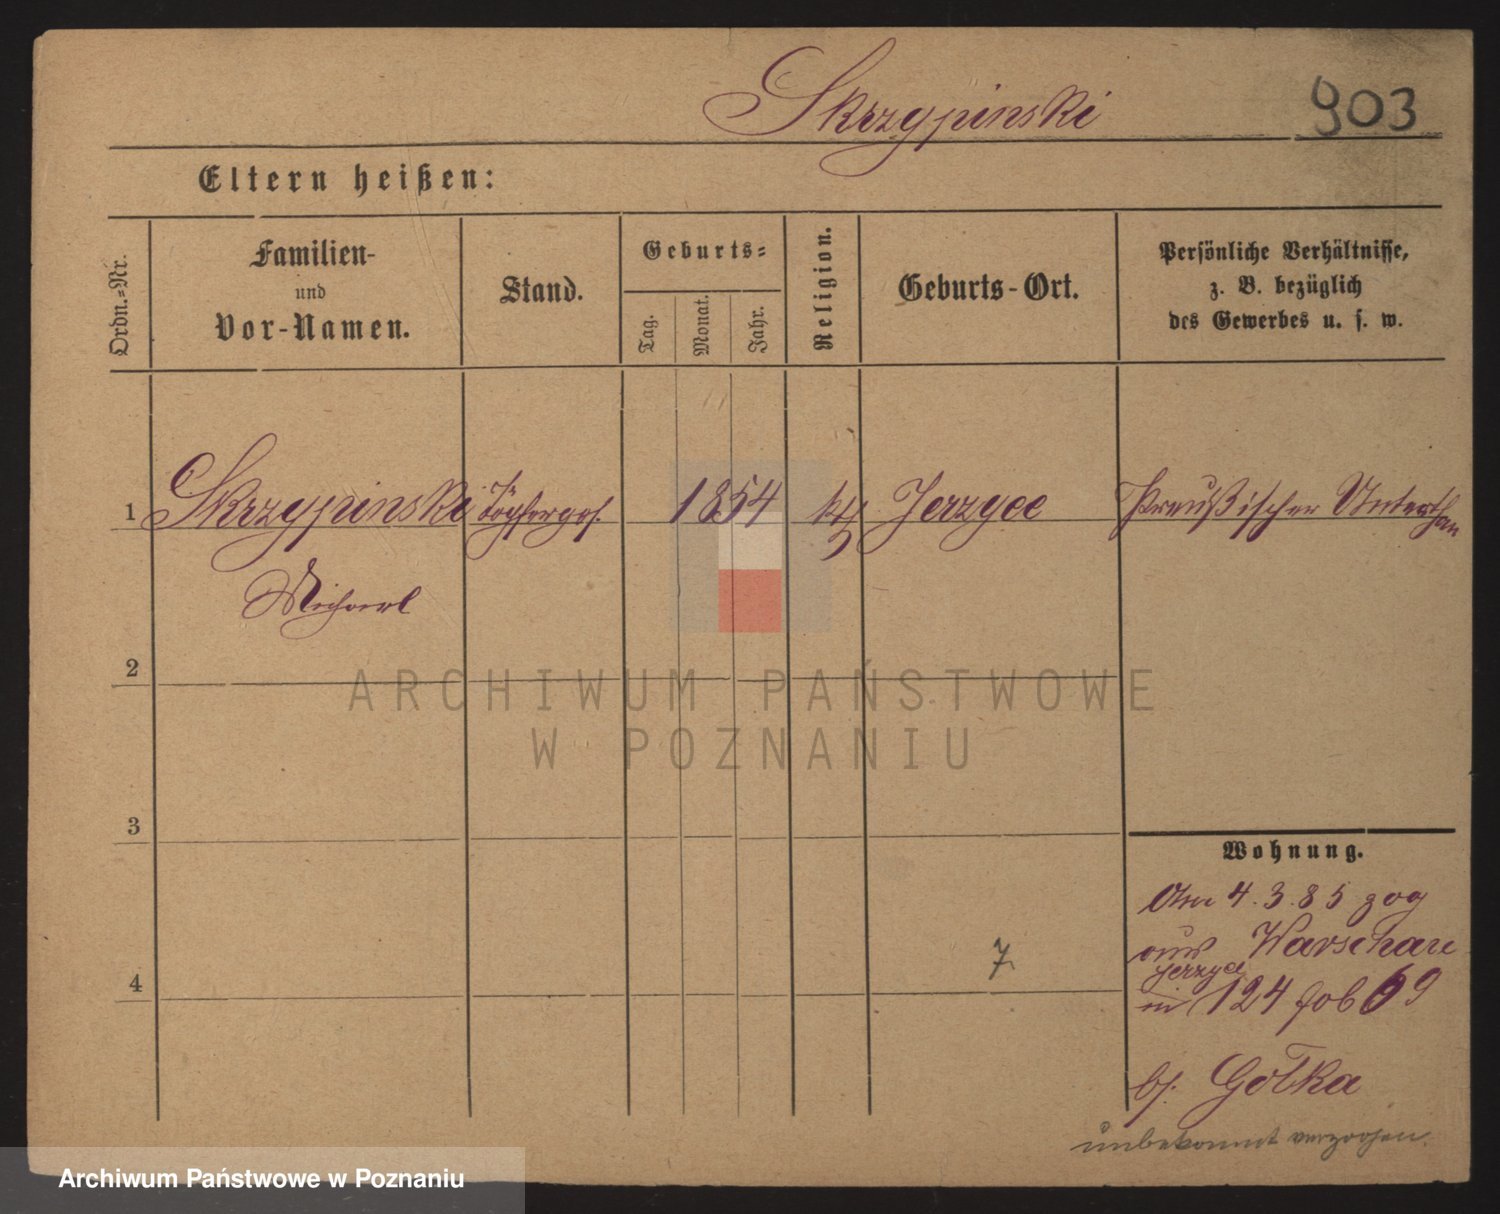 Skrzypinski 903
Eltern heißen:
Ordn.=Nr.
Familien-
und
Vor-Namen.
Stand.
Geburts=
Tag.
Monat.
Jahr.
Religion.
Geburts-Ort.
Persönliche Verhältnisse,
z. B. bezüglich
des Gewerbes u. s. w.
1 Skrzypinski Töpferges. 1854 kth Jerzyce Preußischer Unterthan
Michael
2
ARCHIWUM PAŃSTWOWE
W POZNANIU
3
Wohnung.
Am 4.3.85 zog
aus Warschau
Jerzyce
in 124 69
7
4
bei Gotka
unbekannt verzogen.
Archiwum Państwowe w Poznaniu